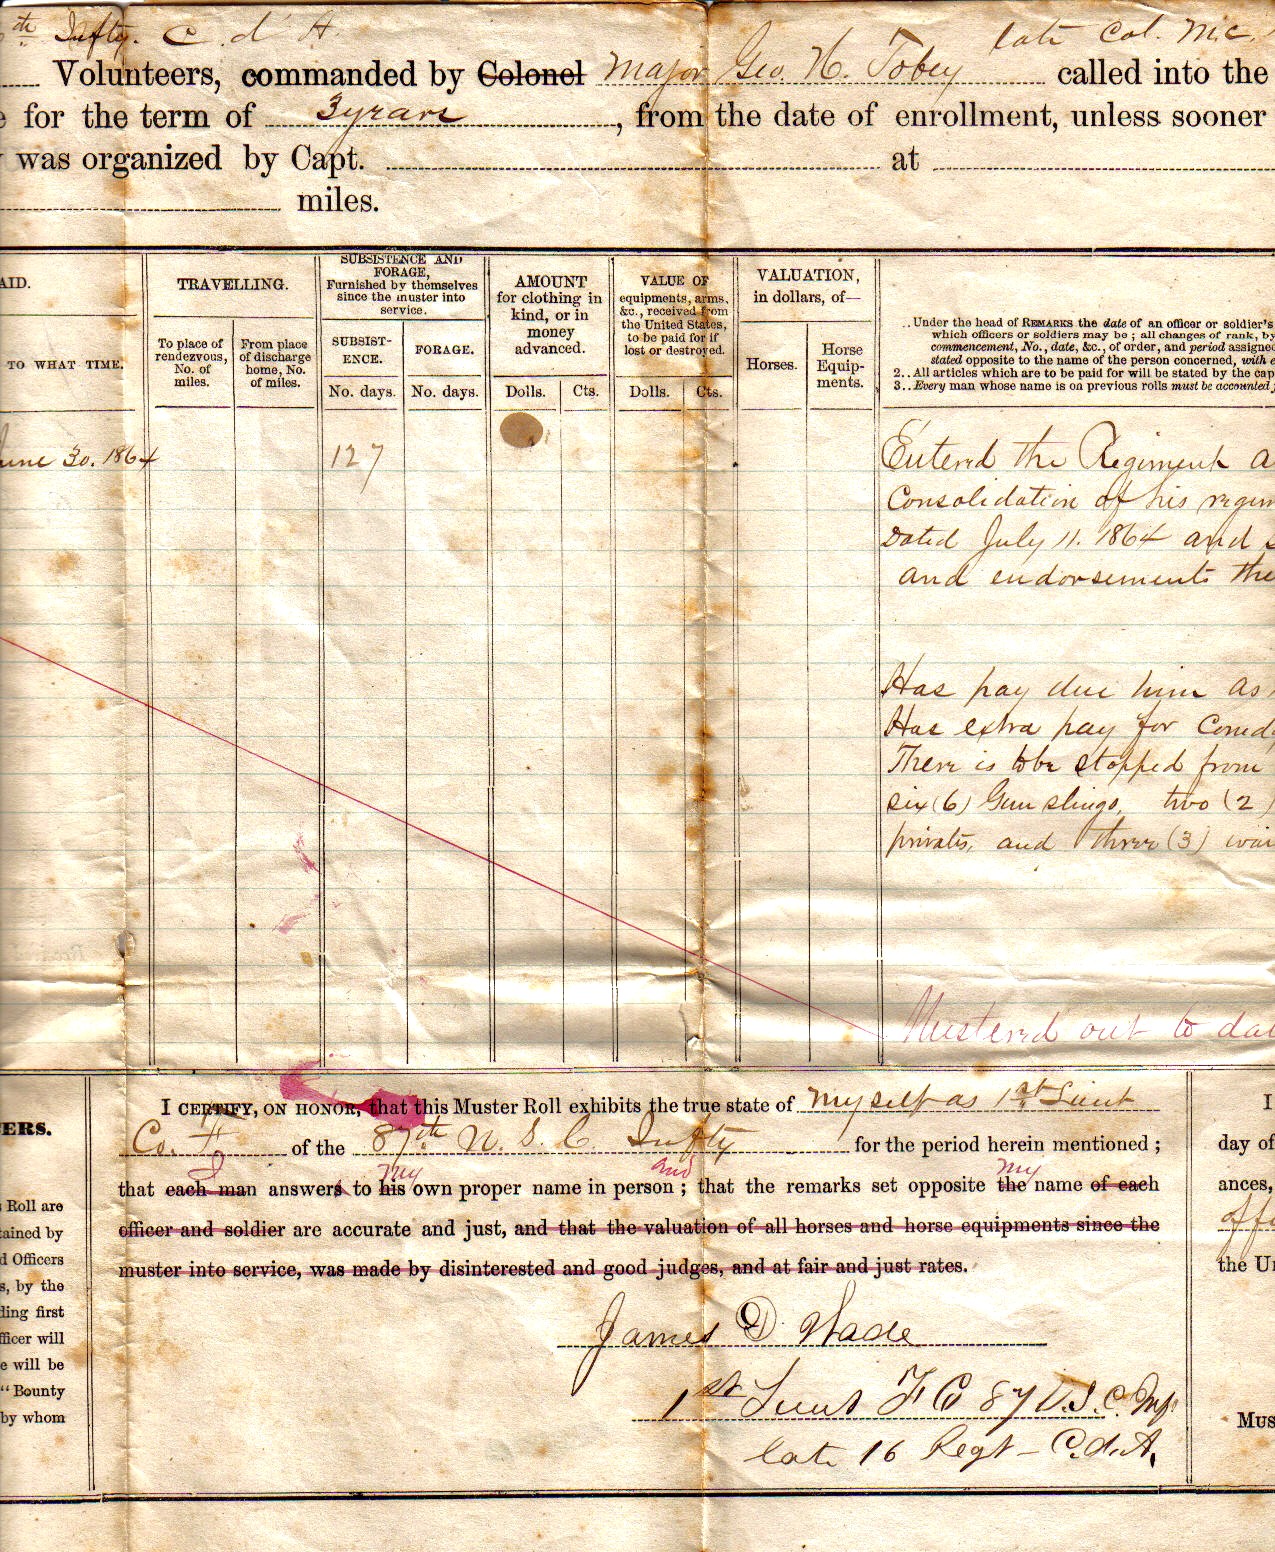 th Infty. C. d' A. late Col. M.C.
Volunteers, commanded by Colonel Major Geo. H. Tobey called into the
e for the term of 3 years, from the date of enrollment, unless sooner
was organized by Capt. at
miles.
AID.
TO WHAT TIME.
TRAVELLING.
To place of rendezvous, No. of miles.
From place of discharge home, No. of miles.
SUBSISTENCE AND FORAGE,
Furnished by themselves since the muster into service.
SUBSIST-ENCE.
FORAGE.
No. days.
No. days.
AMOUNT
for clothing in kind, or in money advanced.
Dolls.
Cts.
VALUE OF
equipments, arms, &c., received from the United States, to be paid for if lost or destroyed.
Dolls.
Cts.
VALUATION,
in dollars, of—
Horses.
Horse Equip-ments.
..Under the head of REMARKS the date of an officer or soldier's
which officers or soldiers may be; all changes of rank, by
commencement, No., date, &c., of order, and period assigned
stated opposite to the name of the person concerned, with e
2..All articles which are to be paid for will be stated by the cap
3..Every man whose name is on previous rolls must be accounted f
June 30. 1864
127
Entered the Regiment a
Consolidation of his regim
Dated July 11. 1864 and
and endorsements the
Has pay due him as
Has extra pay for Comd
There is to be stopped from
six (6) Gun slings, two (2)
privates, and three (3) wai
Mustered out to dat
ERS.
Roll are
tained by
d Officers
s, by the
ding first
fficer will
e will be
"Bounty
by whom
I CERTIFY, ON HONOR, that this Muster Roll exhibits the true state of myself as 1st Lieut
Co. F of the 87th U. S. C. Infty for the period herein mentioned;
I my and my
that each man answers to his own proper name in person; that the remarks set opposite the name of each
officer and soldier are accurate and just, and that the valuation of all horses and horse equipments since the
muster into service, was made by disinterested and good judges, and at fair and just rates.
James D. Wade
1st Lieut F Co 87 U.S.C. Inf
late 16 Regt - C.d.A.
I
day of
ances,
offi
the Un
Mus